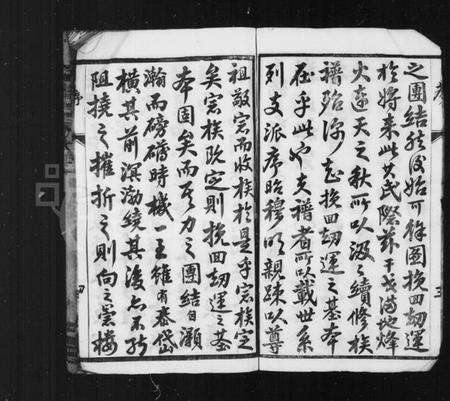 之團結於後始可稱圖挽回劫運
於將來此次民際茲干戈滿地烽
火連天之秋所以汲汲續修族
譜殆深知挽回劫運之基本
在乎此也支譜者所以載世系
列支派序昭穆明親疎以尊
祖敬宗而收族於是乎宗族定
矣宗族既定則挽回劫運之基
本固矣而天力之團結日瀕
瀚而磅礴時機一至雖有泰岱
橫其前溟渤繞其後亦不能
阻撓之摧折之則向之崇樓
序
三
序
四